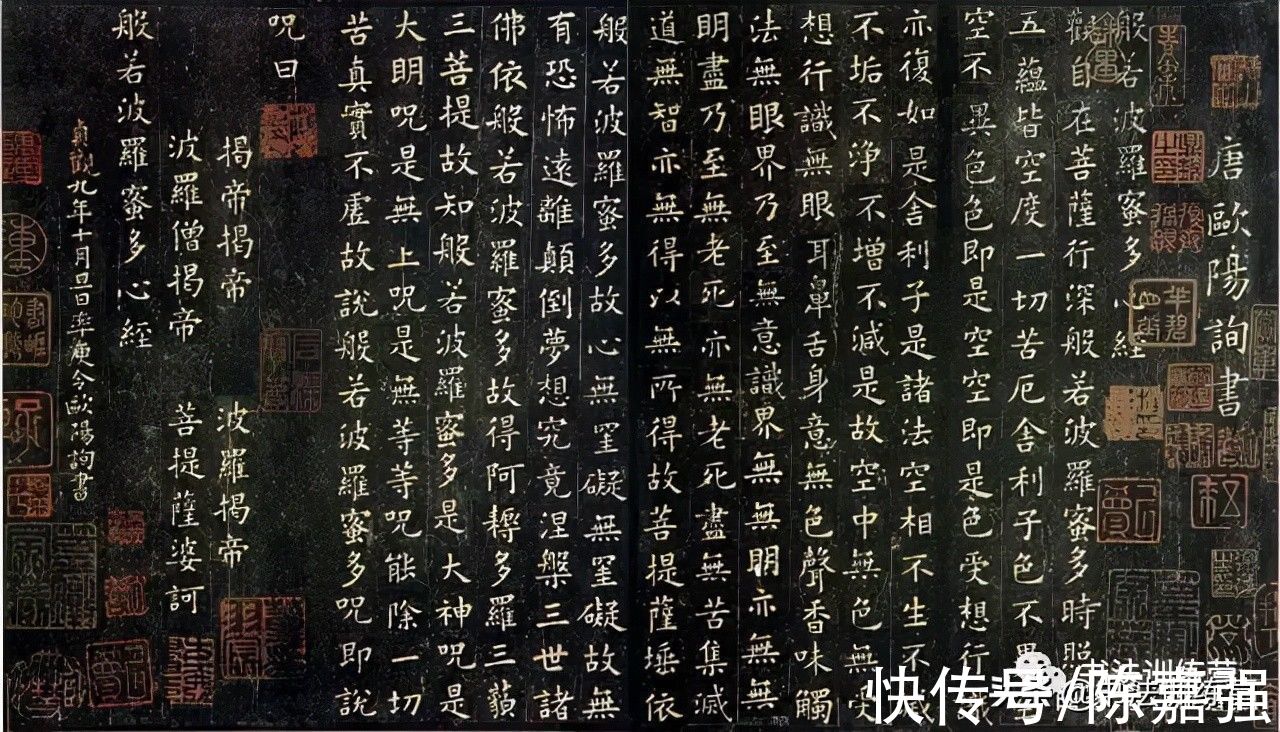 唐歐陽詢書
般若波羅蜜多心經
觀自在菩薩行深般若波羅蜜多時照
五蘊皆空度一切苦厄舍利子色不異
空不異色色即是空空即是色受想行識
亦復如是舍利子是諸法空相不生不滅
不垢不淨不增不減是故空中無色無受
想行識無眼耳鼻舌身意無色聲香味觸
法無眼界乃至無意識界無無明亦無無
明盡乃至無老死亦無老死盡無苦集滅
道無智亦無得以無所得故菩提薩埵依
般若波羅蜜多故心無罣礙無罣礙故無
有恐怖遠離顛倒夢想究竟涅槃三世諸
佛依般若波羅蜜多故得阿耨多羅三藐
三菩提故知般若波羅蜜多是大神咒是
大明咒是無上咒是無等等咒能除一切
苦真實不虛故說般若波羅蜜多咒即說
咒曰
揭帝揭帝 波羅揭帝
波羅僧揭帝 菩提薩婆訶
般若波羅蜜多心經
貞觀九年十月旦日率更令歐陽詢書
快传号/陈嘉强